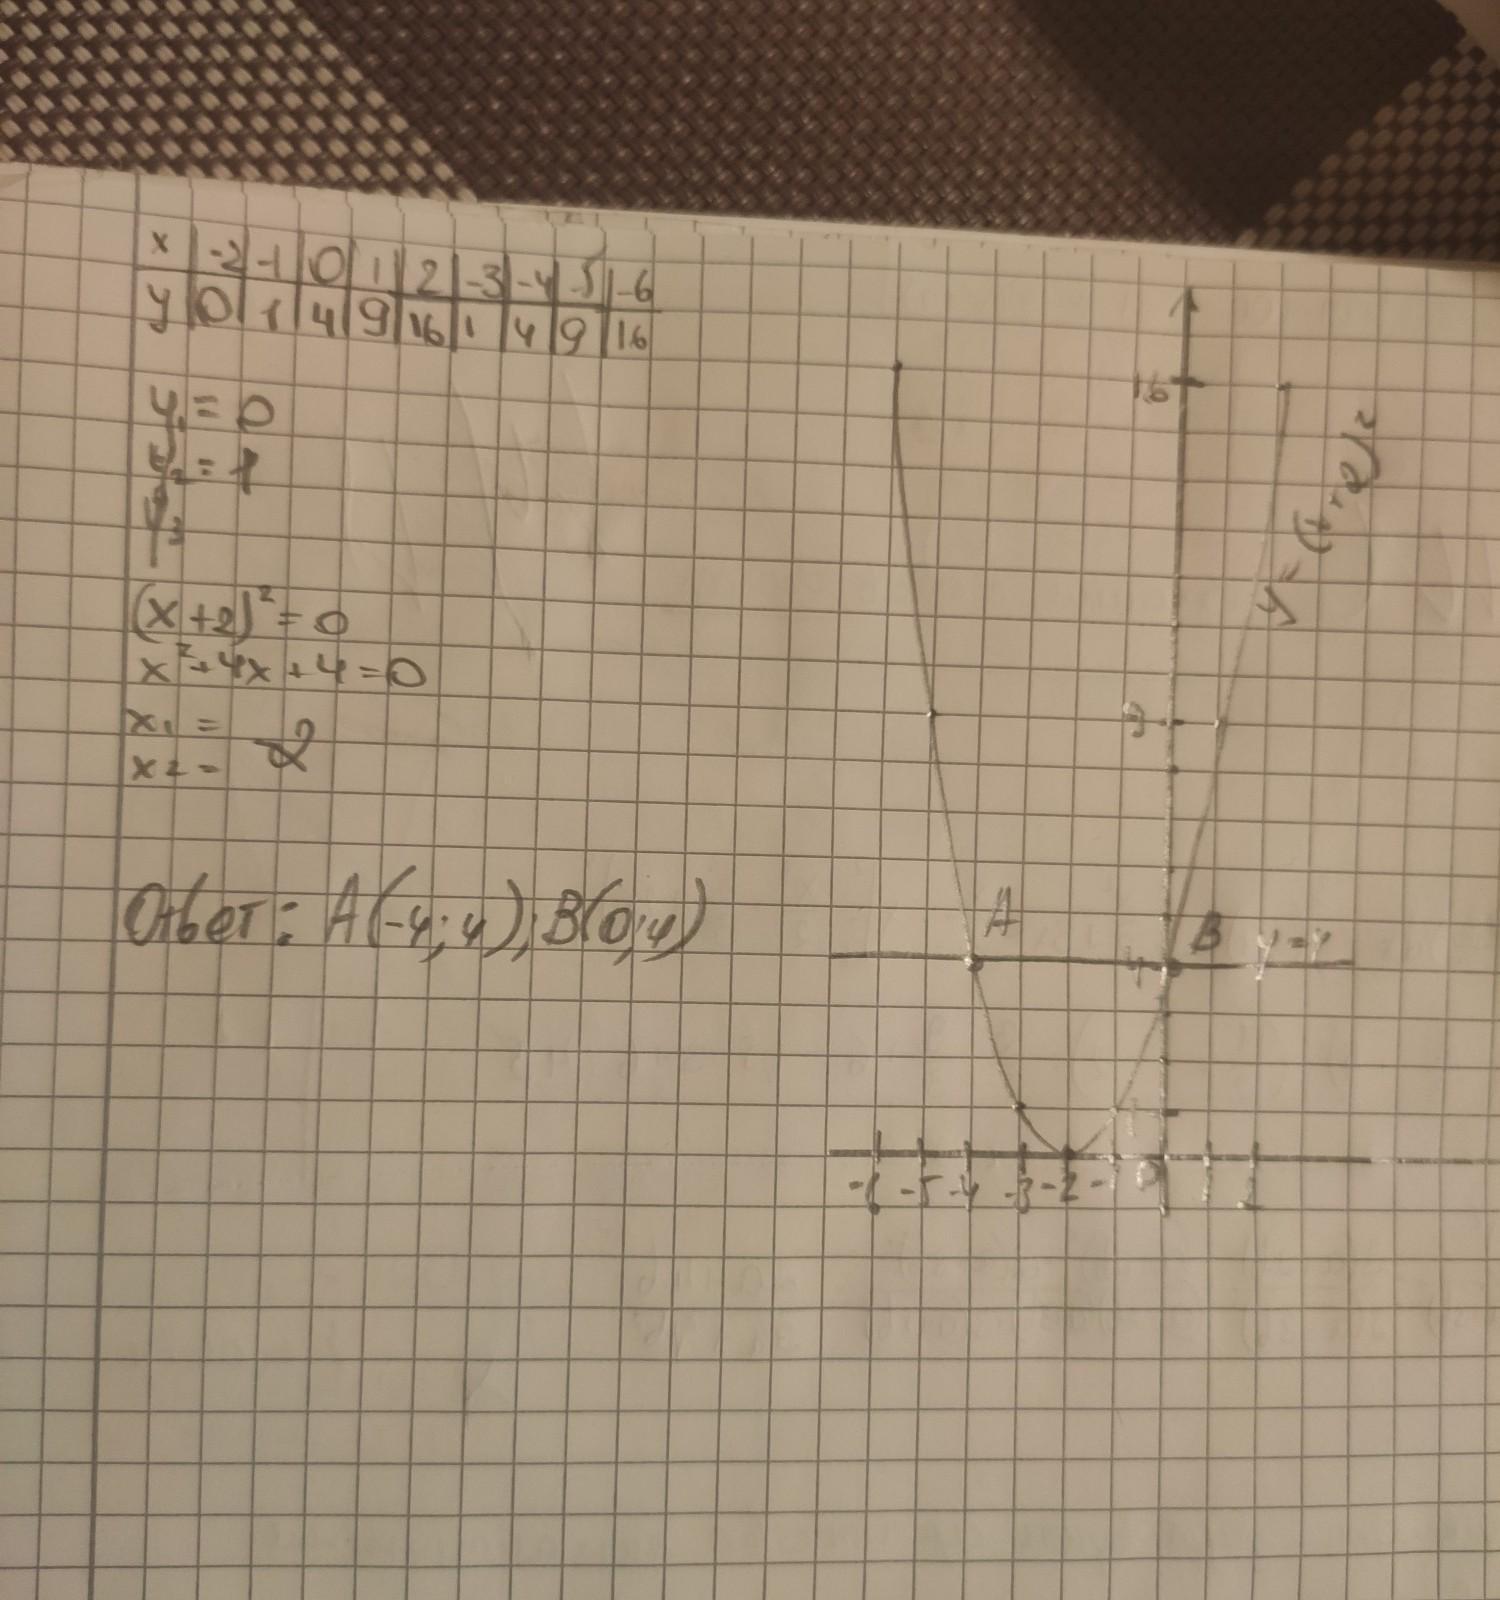 x | -2 | -1 | 0 | 1 | 2 | -3 | -4 | -5 | -6
y | 0 | 1 | 4 | 9 | 16 | 1 | 4 | 9 | 16
y₁ = 0
y₂ = 1
y₃
(x+2)² = 0
x²+4x+4=0
x₁ =
x₂ = -2
Ответ: A(-4;4); B(0;4)
16
y=(x+2)²
9
A
B
y=4
4
1
-6 -5 -4 -3 -2 -1 0 1 2